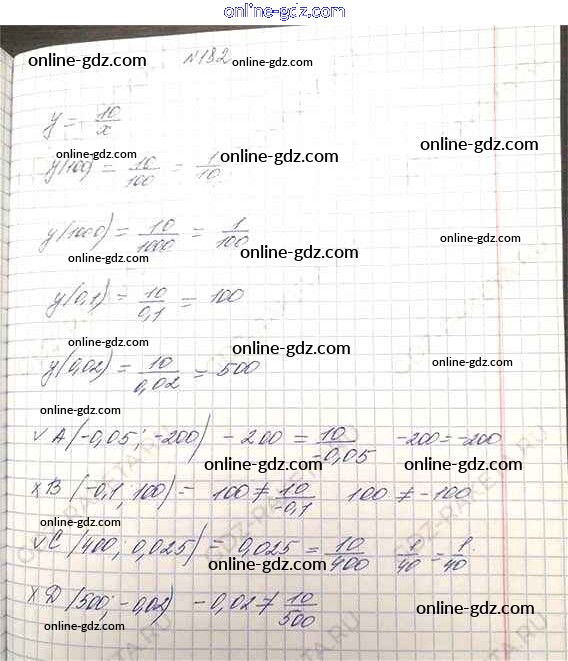 online-gdz.com
№182
online-gdz.com online-gdz.com
y = 10/x
online-gdz.com online-gdz.com
online-gdz.com
y(100) = 10/100 = 1/10
y(1000) = 10/1000 = 1/100
online-gdz.com online-gdz.com
online-gdz.com
y(0,1) = 10/0,1 = 100
online-gdz.com
online-gdz.com
y(0,02) = 10/0,02 = 500
online-gdz.com
online-gdz.com
online-gdz.com
√ A (-0,05; -200) -200 = 10/-0,05 -200 = -200
online-gdz.com online-gdz.com
x B (-0,1; 100) = 100 ≠ 10/-0,1 100 ≠ -100
online-gdz.com
online-gdz.com
√ C (400; 0,025) = 0,025 = 10/400 1/40 = 1/40
online-gdz.com
online-gdz.com
x D (500; -0,02) -0,02 ≠ 10/500
online-gdz.com
online-gdz.com
online-gdz.com